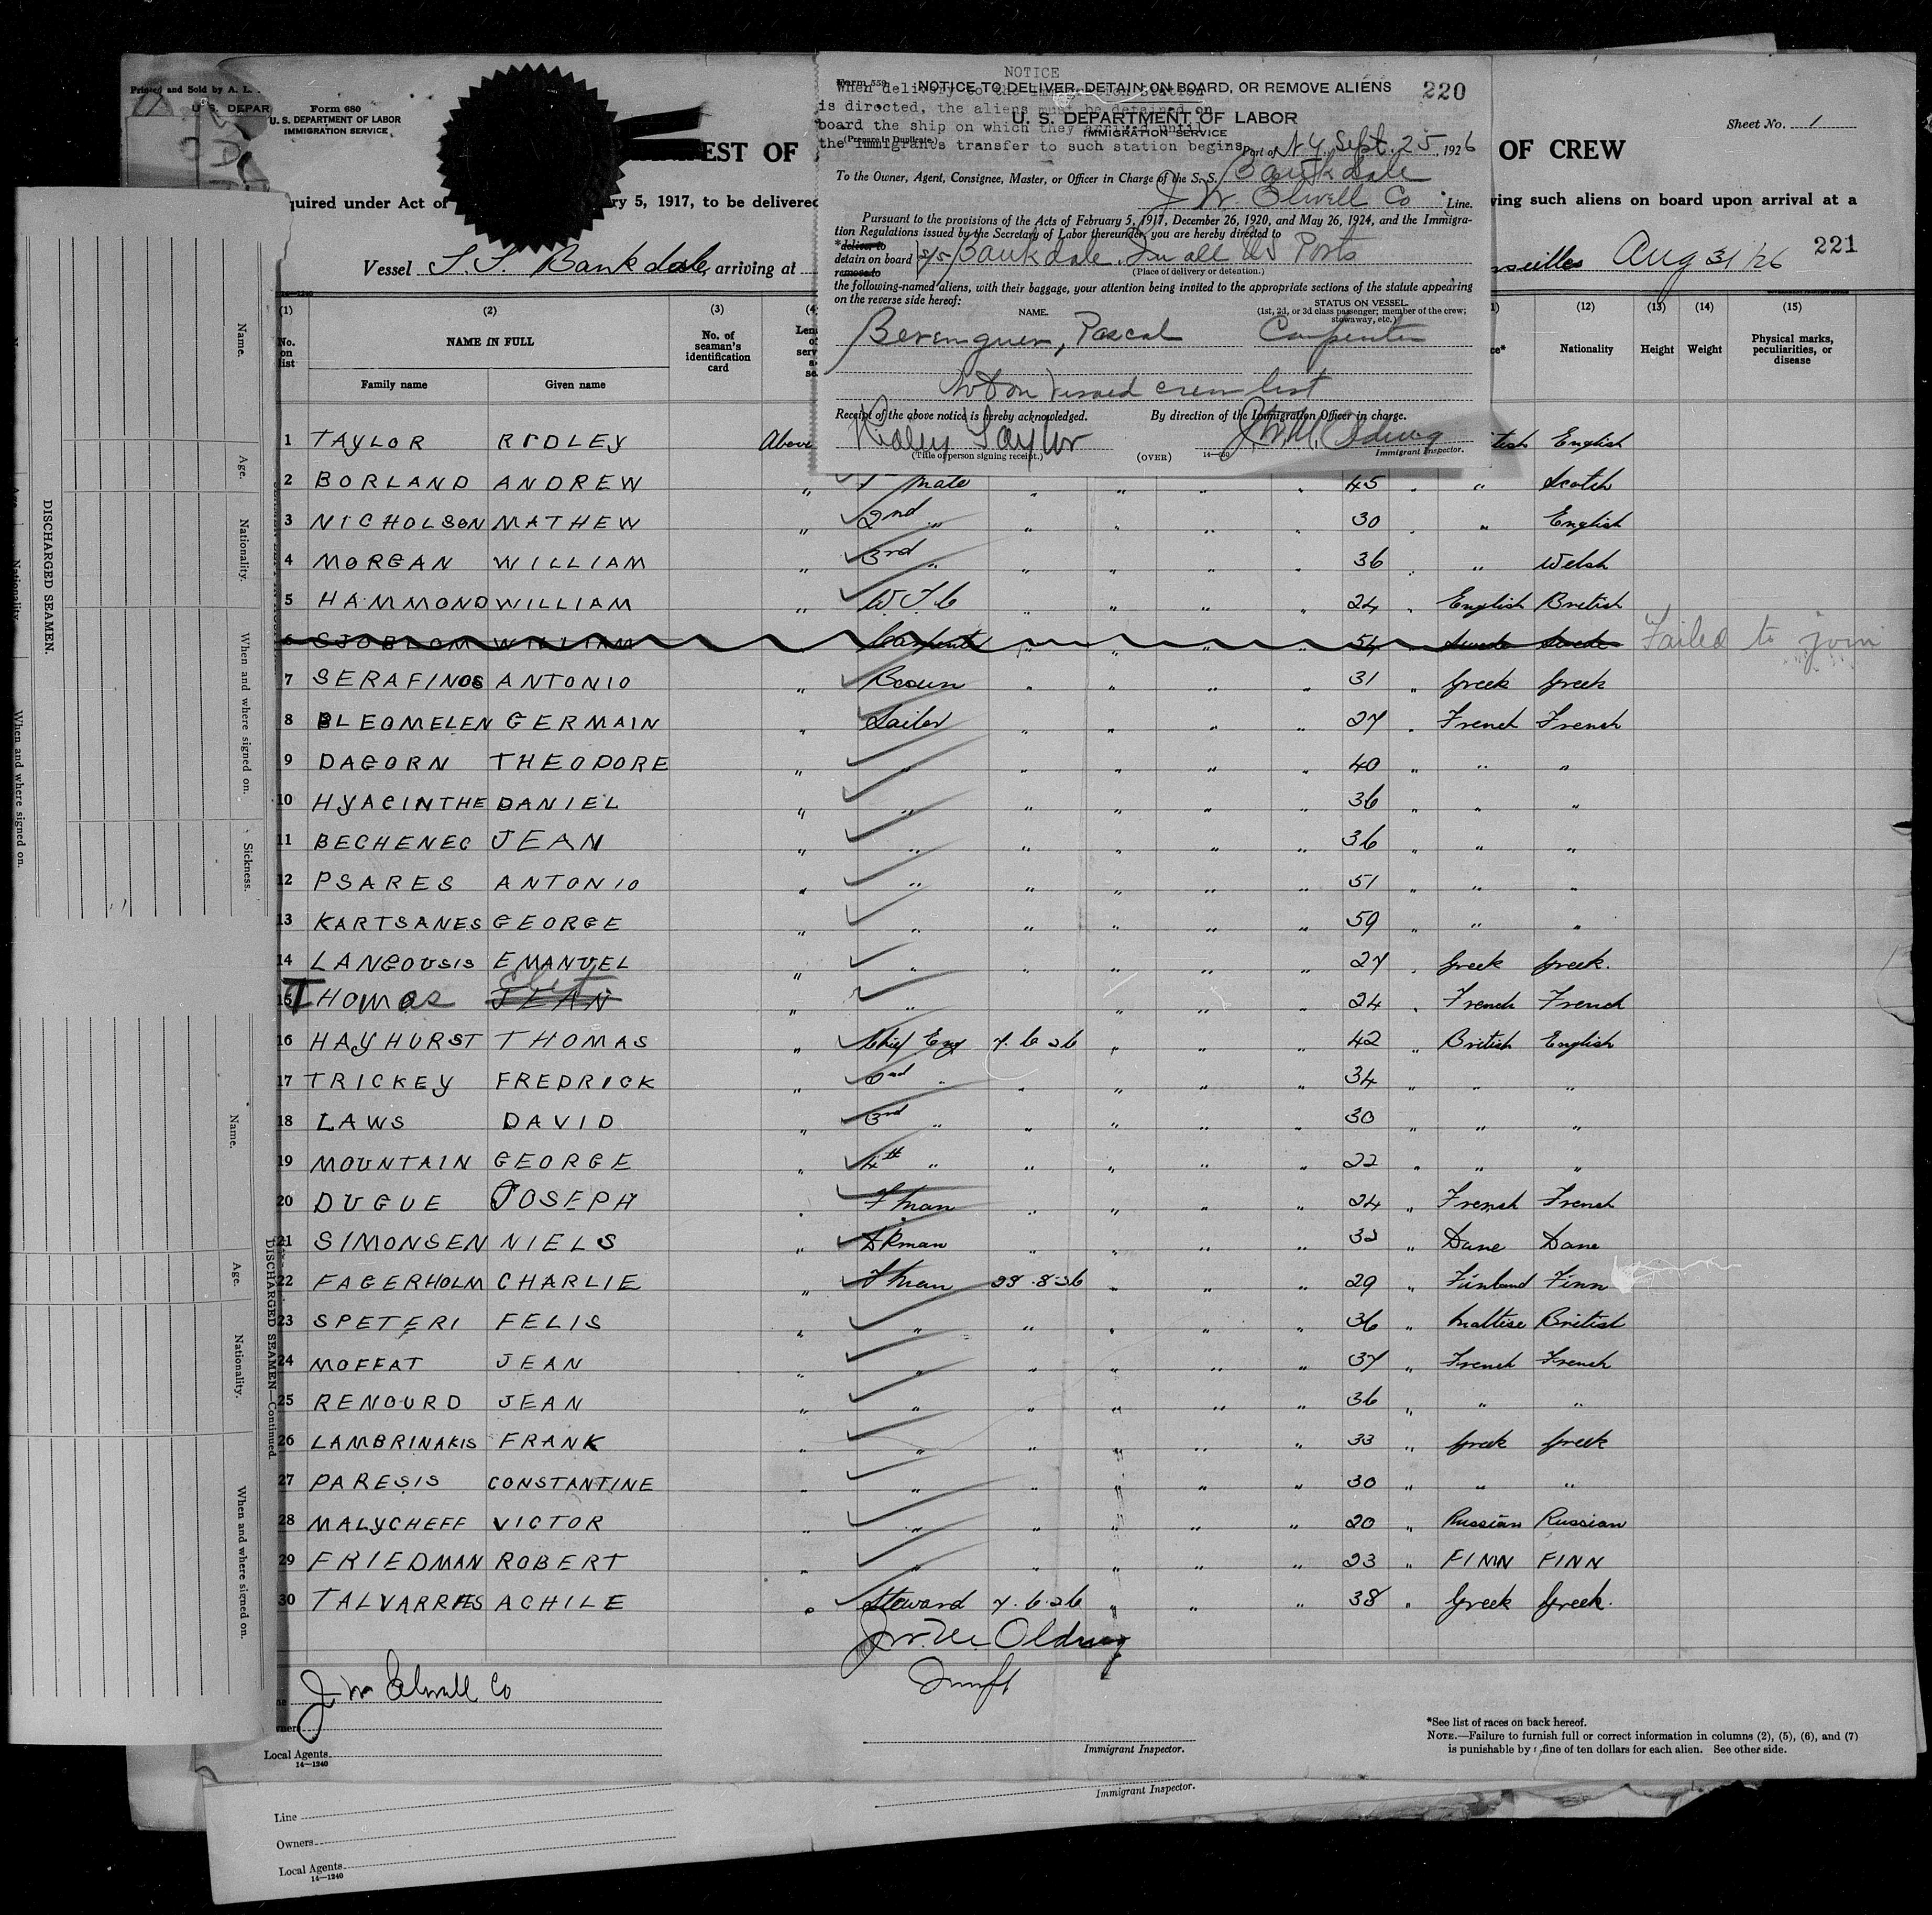 Printed and Sold by A. L.
U. S. DEPAR
Form 680
U. S. DEPARTMENT OF LABOR
IMMIGRATION SERVICE
EST OF
OF CREW
Sheet No. 1
quired under Act of
ry 5, 1917, to be delivered
ving such aliens on board upon arrival at a
Vessel S.S. Bankdale, arriving at
seilles Aug 31/26
221
NOTICE
When delivery to the immigration station
is directed, the aliens must be detained on
board the ship on which they arrived until
the immigrants transfer to such station begins.
Form 559
NOTICE TO DELIVER, DETAIN ON BOARD, OR REMOVE ALIENS
220
U. S. DEPARTMENT OF LABOR
IMMIGRATION SERVICE
(Prepare in Duplicate)
Port of N Y, Sept. 25, 1926
To the Owner, Agent, Consignee, Master, or Officer in Charge of the S. S. Bankdale
J W Elwell Co Line.
Pursuant to the provisions of the Acts of February 5, 1917, December 26, 1920, and May 26, 1924, and the Immigra-
tion Regulations issued by the Secretary of Labor thereunder, you are hereby directed to
*deliver to
detain on board
remove to
S/S Bankdale. In all US Ports
(Place of delivery or detention.)
the following-named aliens, with their baggage, your attention being invited to the appropriate sections of the statute appearing
on the reverse side hereof:
NAME.
STATUS ON VESSEL.
(1st, 2d, or 3d class passenger; member of the crew;
stowaway, etc.)
Berenguer, Pascal Carpenter
Not on visaed crew list
Receipt of the above notice is hereby acknowledged.
By direction of the Immigration Officer in charge.
Ridley Taylor
(Title of person signing receipt.)
(OVER)
Immigrant Inspector.
(1) (2) (3) (12) (13) (14) (15)
No. on list
NAME IN FULL
Family name Given name
No. of seaman's identification card
Nationality Height Weight
Physical marks, peculiarities, or disease
1 TAYLOR RIDLEY Above tish English
2 BORLAND ANDREW " 1 mate " " " " 45 " " Scotch
3 NICHOLSON MATHEW " 2nd " " " " " 30 " " English
4 MORGAN WILLIAM " 3rd " " " " " 36 " " Welsh
5 HAMMOND WILLIAM " W.T.O " " " " 24 " English British
6 SJOBLOM WILLIAM " Carpenter " " " " 54 " Swede Swede Failed to join
7 SERAFINOS ANTONIO " Bosun " " " " 31 " Greek Greek
8 BLEOMELEN GERMAIN " Sailor " " " " 27 " French French
9 DAGORN THEODORE " " " " " " 40 " " "
10 HYACINTHE DANIEL " " " " " " 36 " " "
11 BECHENEC JEAN " " " " " " 36 " " "
12 PSARES ANTONIO " " " " " " 51 " " "
13 KARTSANES GEORGE " " " " " " 59 " " "
14 LANGOUSIS EMANUEL " " " " " " 27 " Greek Greek.
15 THOMAS JEAN " " " " " 24 " French French
16 HAYHURST THOMAS " Chief Eng 7.6.26 " " " 42 " British English
17 TRICKEY FREDRICK " 2nd " " " " " 34 " " "
18 LAWS DAVID " 3rd " " " " " 30 " " "
19 MOUNTAIN GEORGE " 4th " " " " " 22 " " "
20 DUGUE JOSEPH " F'man " " " " 24 " French French
21 SIMONSEN NIELS " Dkman " " " " 32 " Dane Dane
22 FAGERHOLM CHARLIE " F'man 28.8.26 " " " 29 " Finland Finn
23 SPETERI FELIS " " " " " " 36 " Maltise British
24 MOFFAT JEAN " " " " " " 37 " French French
25 RENOURD JEAN " " " " " " 36 " " "
26 LAMBRINAKIS FRANK " " " " " " 33 " Greek Greek
27 PARESIS CONSTANTINE " " " " " " 30 " " "
28 MALYCHEFF VICTOR " " " " " " 20 " Russian Russian
29 FRIEDMAN ROBERT " " " " " " 23 " FINN FINN
30 TALVARRIES ACHILE " Steward 7.6.26 " " " 38 " Greek Greek.
J W Elwell Co
Owners
Local Agents
14—1240
Immigrant Inspector.
*See list of races on back hereof.
NOTE.—Failure to furnish full or correct information in columns (2), (5), (6), and (7)
is punishable by fine of ten dollars for each alien. See other side.
Line
Owners
Local Agents
14—1240
Immigrant Inspector.
DISCHARGED SEAMEN.
Name.
Age.
Nationality.
When and where signed on.
Sickness.
Nationality.
When and where signed on.
DISCHARGED SEAMEN—Continued.
Name.
Age.
Nationality.
When and where signed on.